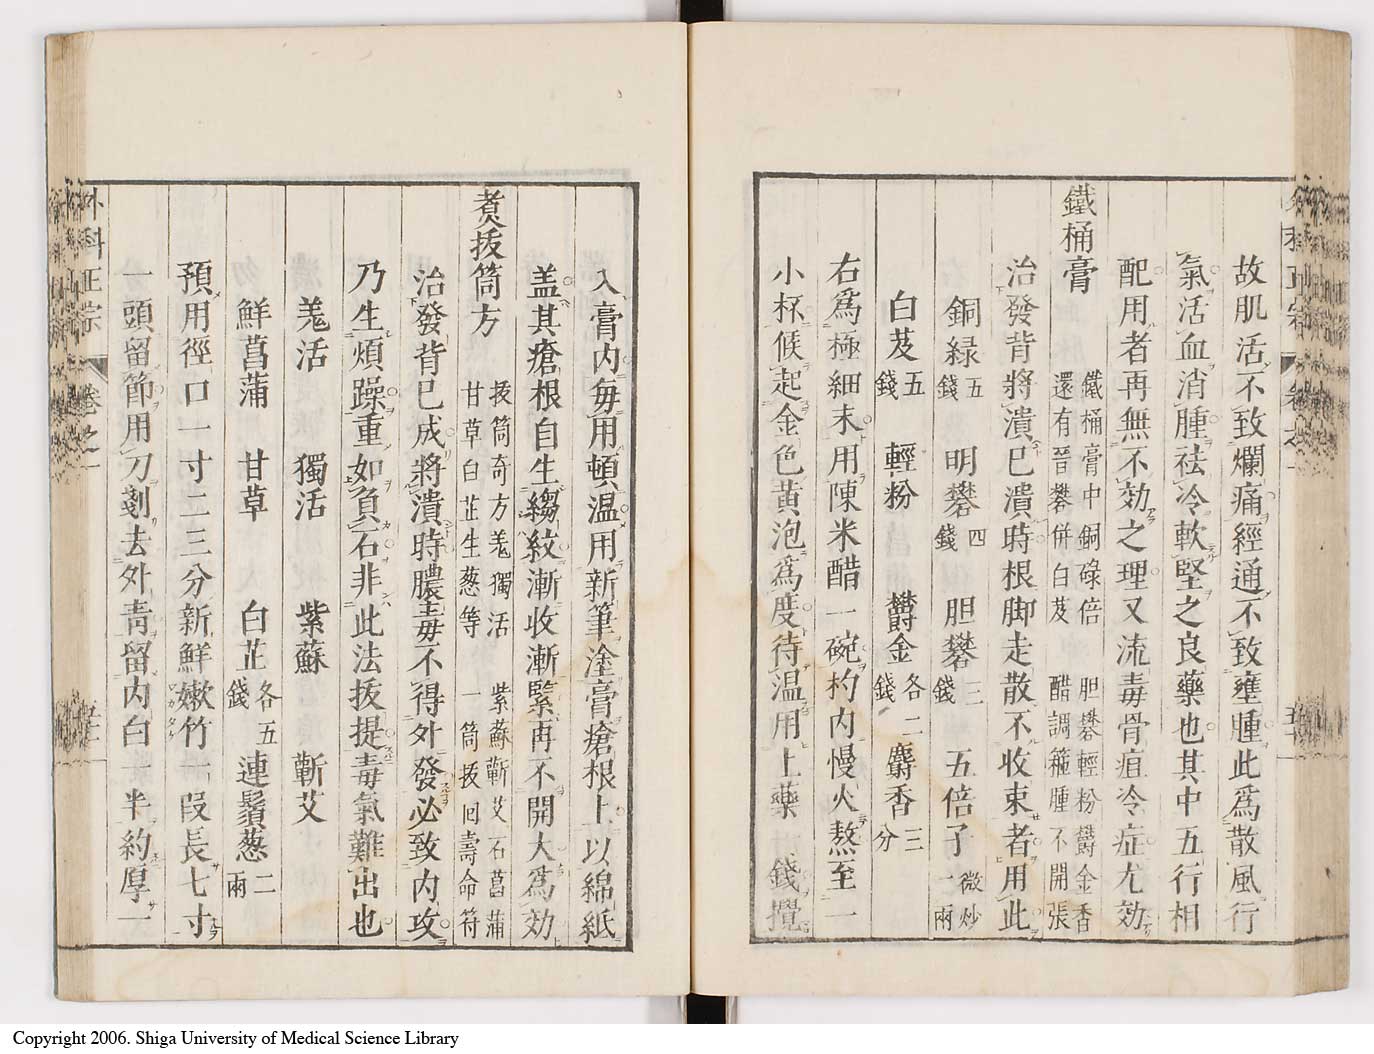 故肌活不致爛痛經通不致壅腫此為散風行
氣活血消腫祛冷軟堅之良藥也其中五行相
配用者再無不効之理又流毒骨疽冷症尤効
鐵桶膏
鐵桶膏中銅碌倍 胆礬輕粉欝金香
還有晉礬併白芨 醋調箍腫不開張
治發背將潰已潰時根脚走散不收束者用此
銅綠五錢 明礬四錢 胆礬三錢 五倍子微炒一兩
白芨五錢 輕粉 欝金各二錢 麝香三分
右為極細末用陳米醋一碗杓内慢火熬至一
小杯候起金色黄泡為度待温用上藥一錢攪
入膏内毎用頓温用新筆塗膏瘡根上以綿紙
盖其瘡根自生縐紋漸收漸緊再不開大為効
煑拔筒方
拔筒奇方羗獨活 紫蘇蘄艾石菖蒲
甘草白芷生葱等 一筒拔回壽命符
治發背已成將潰時膿毒不得外發必致内攻
乃生煩躁重如負石非此法拔提毒氣難出也
羗活 獨活 紫蘇 蘄艾
鮮菖蒲 甘草 白芷各五錢 連鬚葱二兩
預用徑口一寸二三分新鮮嫩竹一段長七寸
一頭留節用刀剗去外青留内白一半約厚一
外科正宗 卷之一